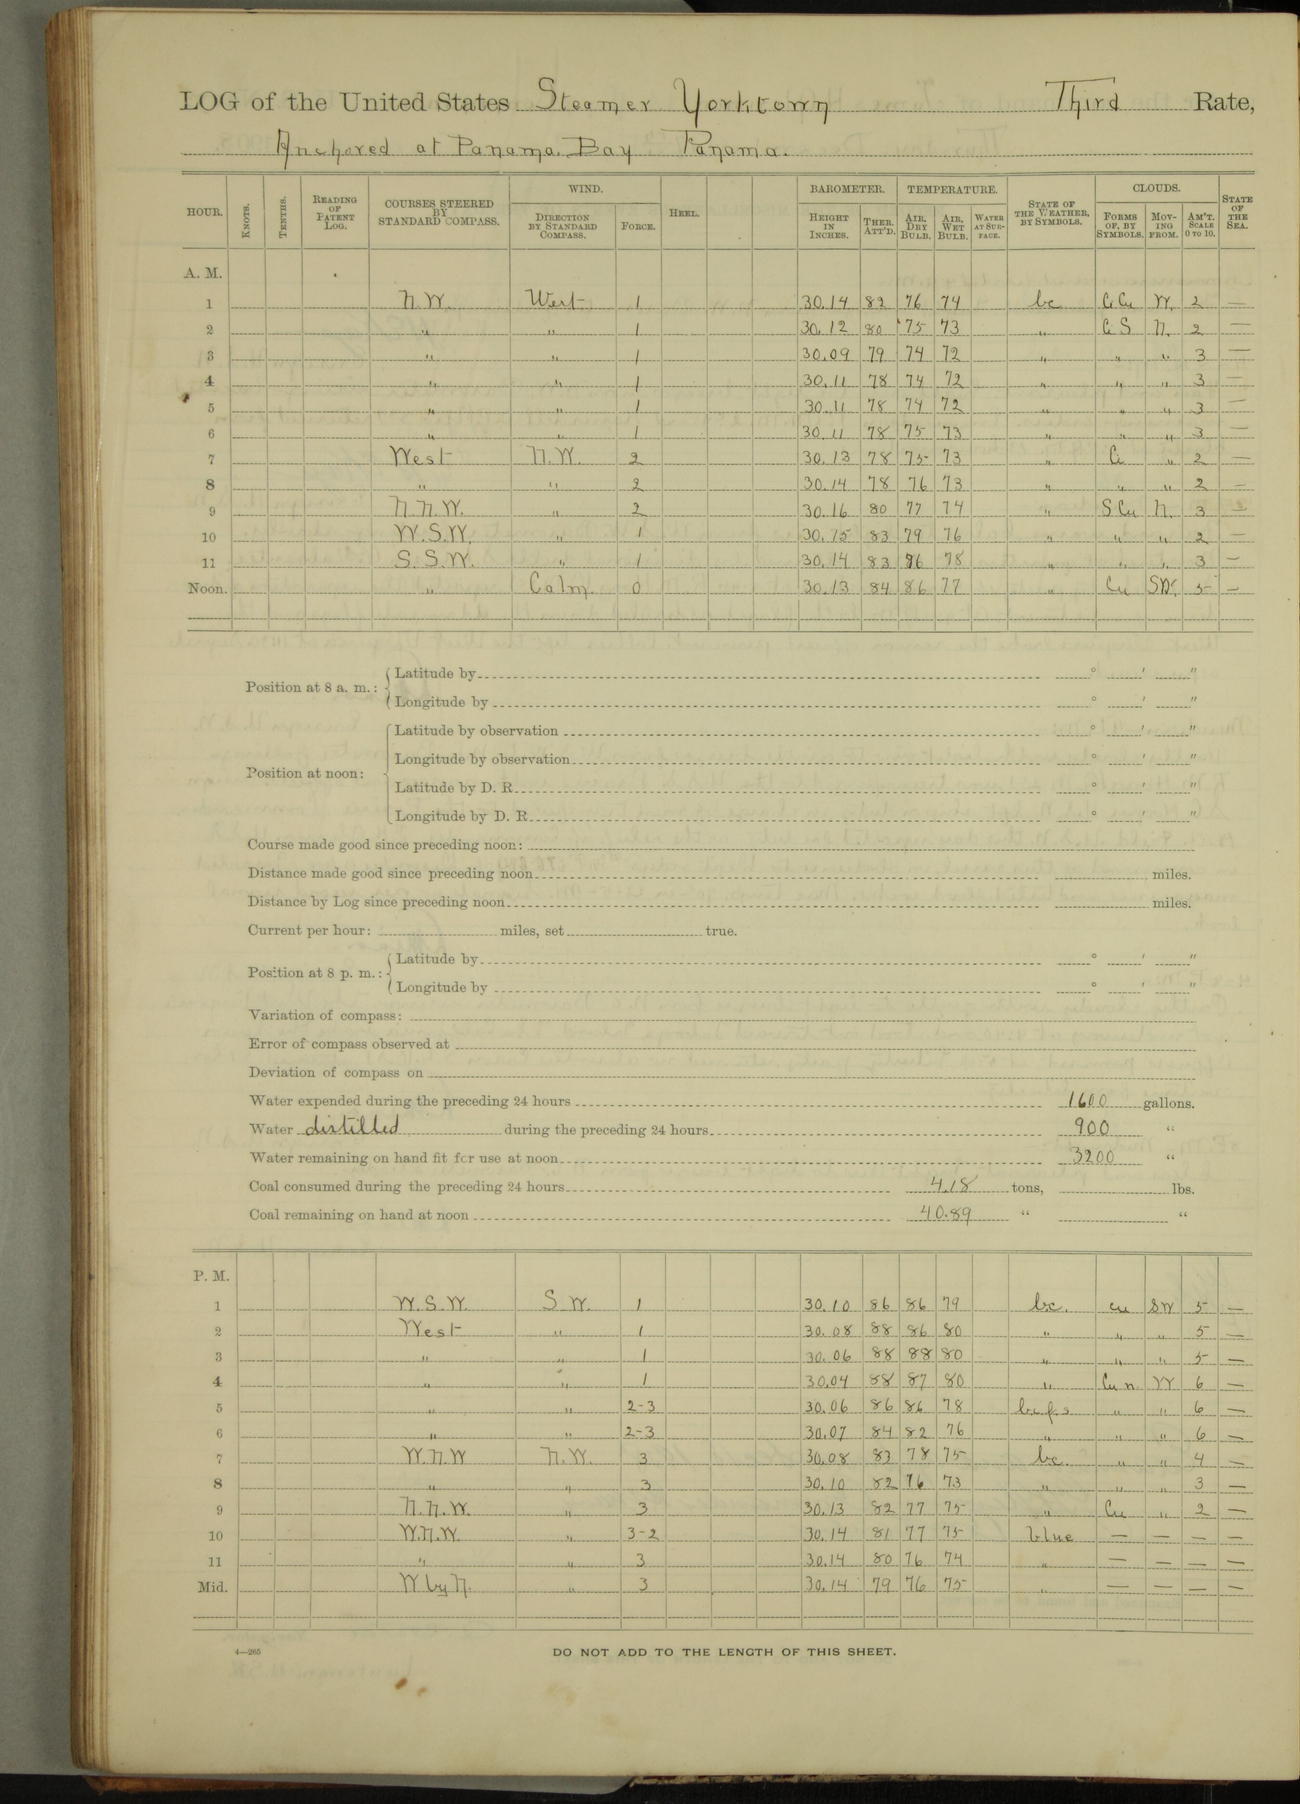 LOG of the United States Steamer Yorktown Third Rate,
Anchored at Panama Bay Panama.
HOUR. KNOTS. TENTHS. READING OF PATENT LOG. COURSES STEERED BY STANDARD COMPASS. WIND. DIRECTION BY STANDARD COMPASS. FORCE. HEEL. BAROMETER. HEIGHT IN INCHES. THER. ATT'D. TEMPERATURE. AIR, DRY BULB. AIR, WET BULB. WATER AT SURFACE. STATE OF THE WEATHER, BY SYMBOLS. CLOUDS. FORMS OF, BY SYMBOLS. MOVING FROM. AM'T. SCALE 0 TO 10. STATE OF THE SEA.
A. M.
1 N.W. West 1 30.14 82 76 74 bc Ci Cu W. 2 —
2 " " 1 30.12 80 75 73 " Ci S N. 2 —
3 " " 1 30.09 79 74 72 " " " 3 —
4 " " 1 30.11 78 74 72 " " " 3 —
5 " " 1 30.11 78 74 72 " " " 3 —
6 " " 1 30.11 78 75 73 " " " 3 —
7 West N.W. 2 30.13 78 75 73 " Ci " 2 —
8 " " 2 30.14 78 76 73 " " " 2 —
9 N.N.W. " 2 30.16 80 77 74 " S Cu N. 3 —
10 W.S.W. " 1 30.15 83 79 76 " " " 2 —
11 S.S.W. " 1 30.14 83 86 78 " " " 3 —
Noon. " Calm 0 30.13 84 86 77 " Cu SW. 5 —
Position at 8 a. m.: Latitude by ° ' "
Longitude by ° ' "
Position at noon: Latitude by observation ° ' "
Longitude by observation ° ' "
Latitude by D. R. ° ' "
Longitude by D. R. ° ' "
Course made good since preceding noon:
Distance made good since preceding noon miles.
Distance by Log since preceding noon miles.
Current per hour: miles, set true.
Position at 8 p. m.: Latitude by ° ' "
Longitude by ° ' "
Variation of compass:
Error of compass observed at
Deviation of compass on
Water expended during the preceding 24 hours 1600 gallons.
Water distilled during the preceding 24 hours 900 "
Water remaining on hand fit for use at noon 3200 "
Coal consumed during the preceding 24 hours 4.18 tons, lbs.
Coal remaining on hand at noon 40.89 " "
P. M.
1 W.S.W. S.W. 1 30.10 86 86 79 bc. cu SW 5 —
2 West " 1 30.08 88 86 80 " " " 5 —
3 " " 1 30.06 88 88 80 " " " 5 —
4 " " 1 30.04 88 87 80 " Cu n. W 6 —
5 " " 2-3 30.06 86 86 78 " " 6 —
6 " " 2-3 30.07 84 82 76 " " " 6 —
7 W.N.W N.W. 3 30.08 83 78 75 bc. " " 4 —
8 " " 3 30.10 82 76 73 " " " 3 —
9 N.N.W. " 3 30.13 82 77 75 " Cu " 2 —
10 W.N.W. " 3-2 30.14 81 77 75 blue — — — —
11 " " 3 30.14 80 76 74 " — — — —
Mid. W by N. " 3 30.14 79 76 75 " — — — —
4—265
DO NOT ADD TO THE LENGTH OF THIS SHEET.